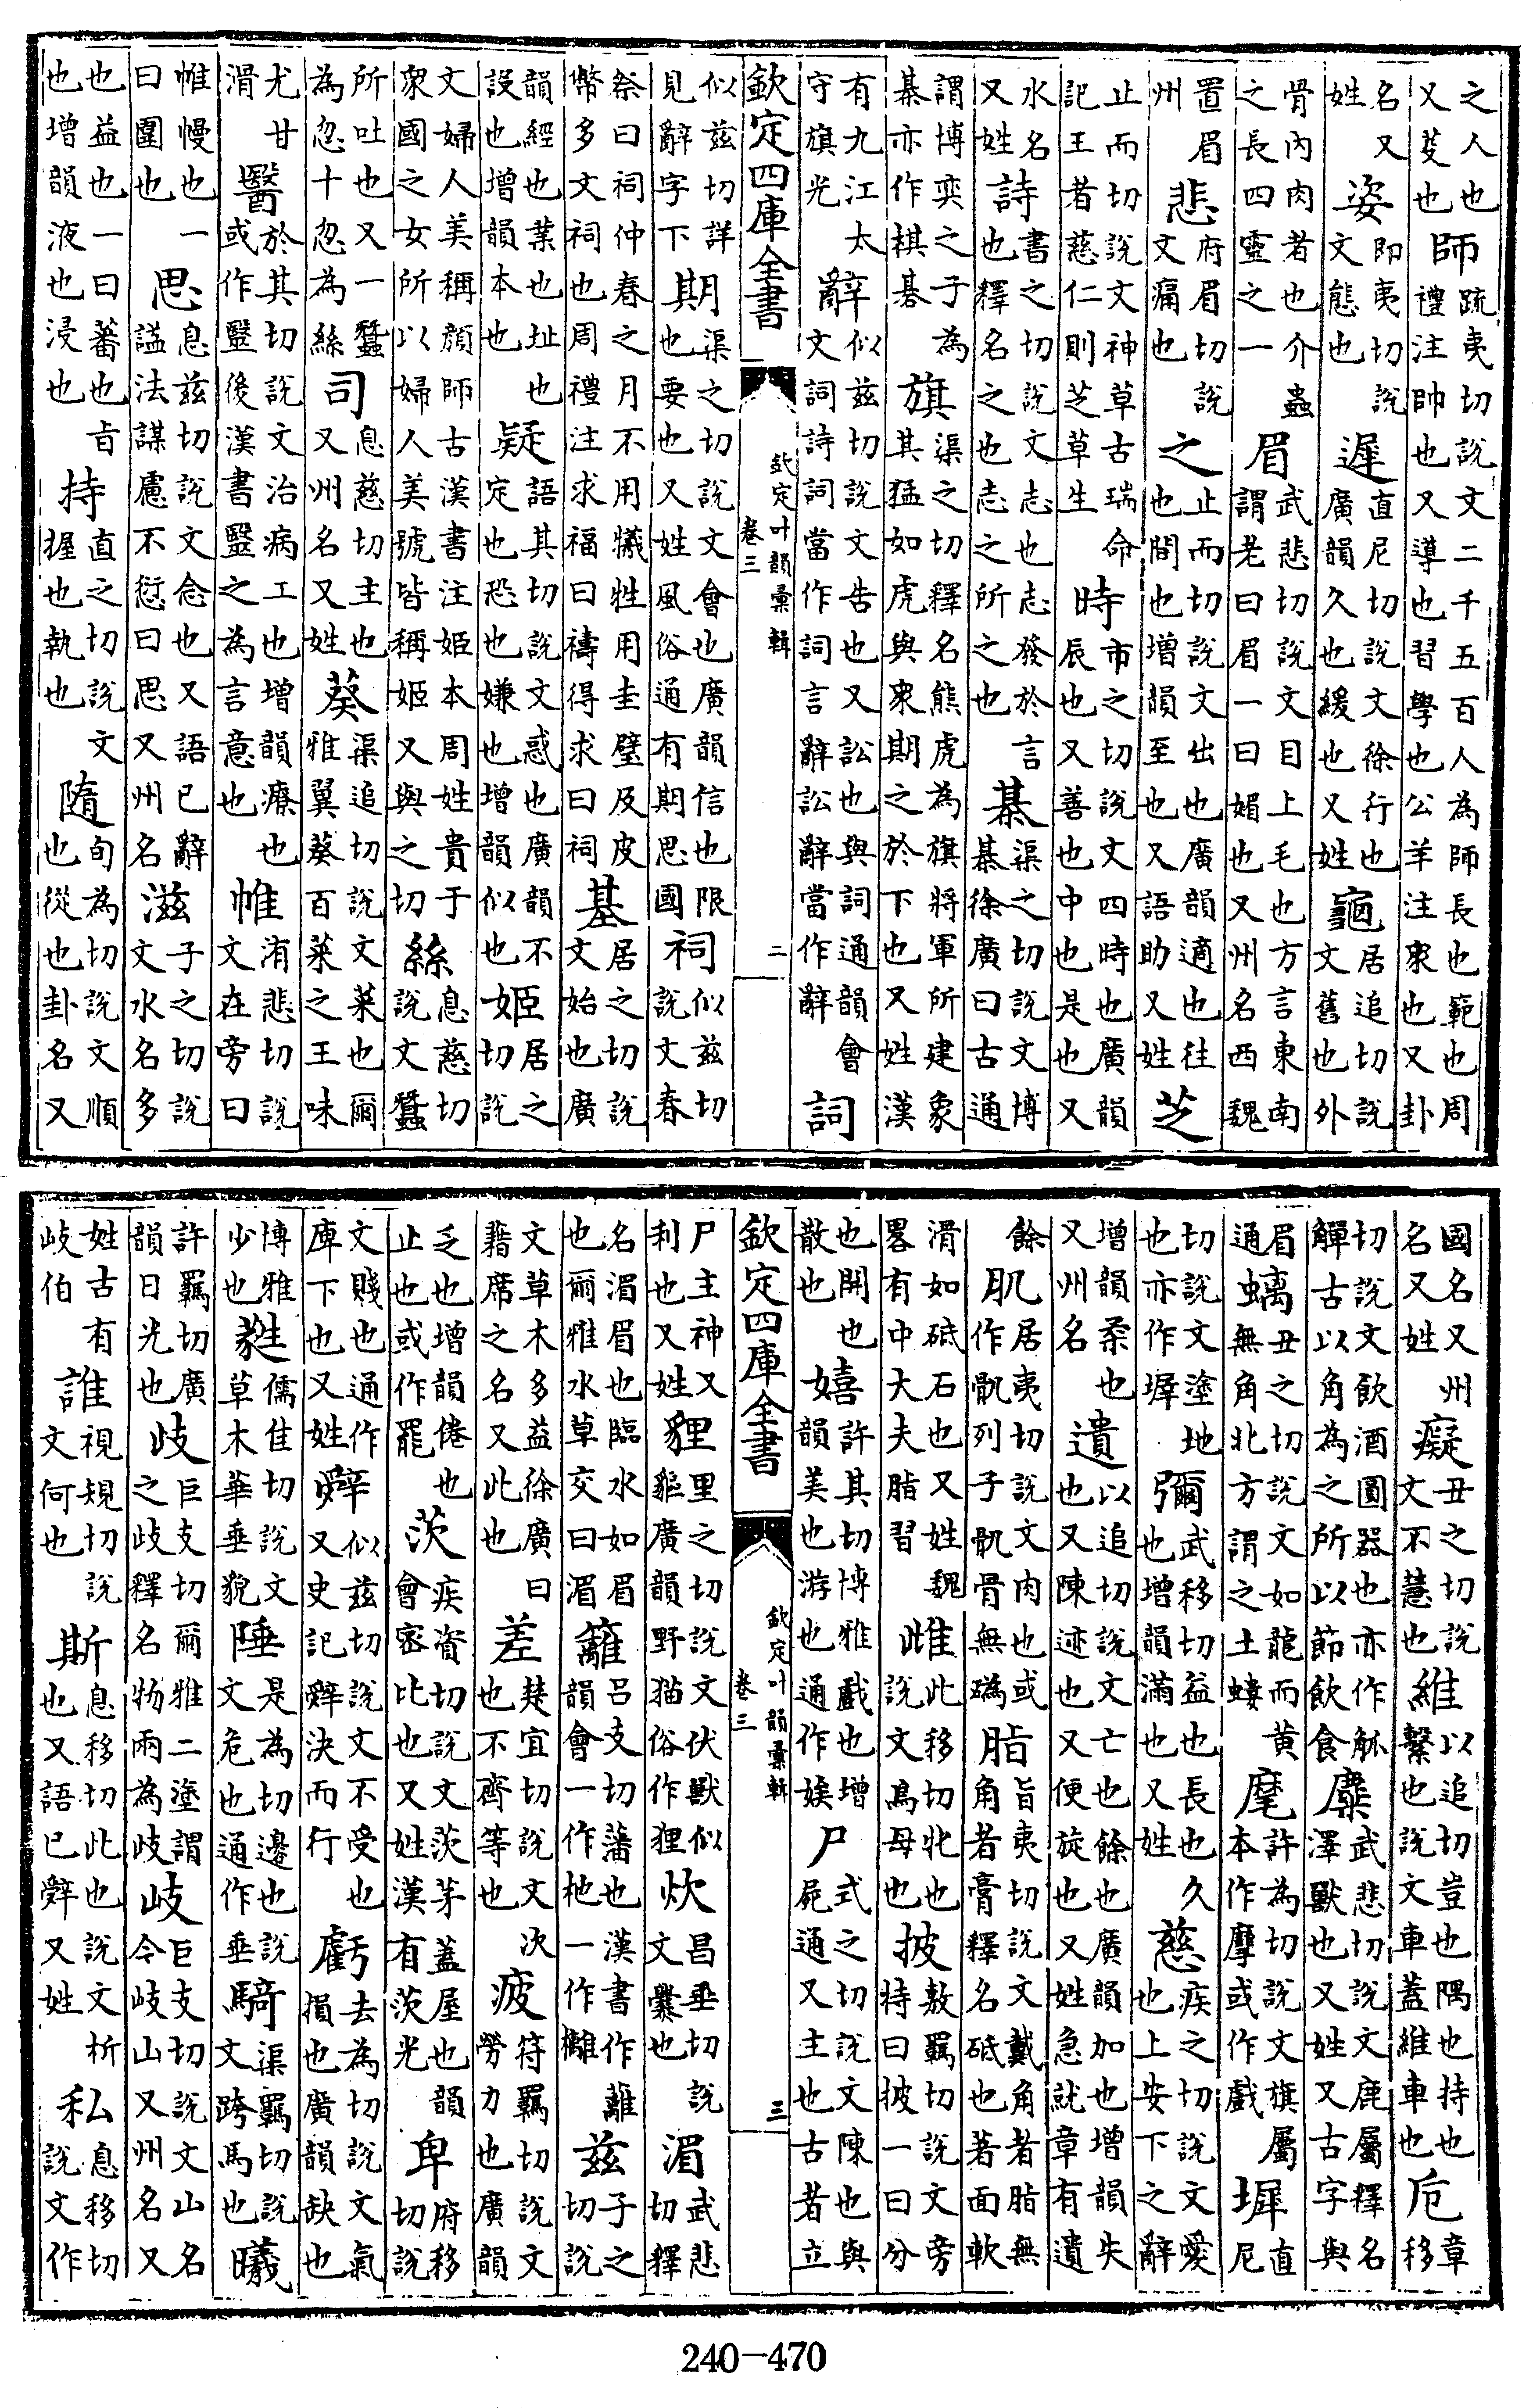 之人也又㚆也師踈夷切說文二千五百人為師長也範也周禮注帥也又導也習學也公羊注衆也又卦
名又姓姿即夷切說文態也遲直尼切說文徐行也廣韻久也緩也又姓龜居追切說文舊也外
骨內肉者也介蟲之長四靈之一眉武悲切說文目上毛也方言東南謂老曰眉一曰媚也又州名西魏
置眉州悲府眉切說文痛也之止而切說文出也廣韻適也往也間也增韻至也又語助又姓芝
止而切說文神草古瑞命記王者慈仁則芝草生時市之切說文四時也廣韻辰也又善也中也是也又
水名又姓詩書之切說文志也志發於言也釋名之也志之所之也棊渠之切說文博棊徐廣曰古通
謂博奕之子為棊亦作棋碁旗渠之切釋名熊虎為旗將軍所建象其猛如虎與衆期之於下也又姓漢
有九江太守旗光辭似兹切說文告也又訟也與詞通韻會文詞詩詞當作詞言辭訟辭當作辭詞
欽定四庫全書
欽定叶韻彙輯
卷三
二
似兹切詳見辭字下期渠之切說文會也廣韻信也限也要也又姓風俗通有期思國祠似兹切說文春
祭曰祠仲春之月不用犧牲用圭璧及皮幣多文祠也周禮注求福曰禱得求曰祠基居之切說文始也廣
韻經也葉也址也設也增韻本也疑語其切說文惑也廣韻不定也恐也嫌也增韻似也姬居之切說
文婦人美稱顔師古漢書注姬本周姓貴于衆國之女所以婦人美號皆稱姬又與之切絲息慈切說文蠶
所吐也又一蠶為忽十忽為絲司息慈切主也又州名又姓葵渠追切說文菜也爾雅翼葵百菜之王味
尤甘滑醫於其切說文治病工也增韻療也或作毉後漢書毉之為言意也帷洧悲切說文在旁曰
帷幔也一曰圍也思息兹切說文念也又語已辭謚法謀慮不愆曰思又州名滋子之切說文水名多
也益也一曰蕃也旨也增韻液也浸也持直之切說文握也執也隋旬為切說文順也從也卦名又
國名又州名又姓癡丑之切說文不慧也維以追切豈也隅也持也繫也說文車蓋維車也巵章移
切說文飲酒圓器也亦作觚觶古以角為之所以節飲食麋武悲切說文鹿屬釋名澤獸也又姓又古字與
眉通螭丑之切說文如龍而黃無角北方謂之土螻麾許為切說文旗屬本作摩或作戲墀直尼
切說文塗地也亦作墀彌武移切益也長也久也增韻滿也又姓慈疾之切說文愛也上安下之辭
增韻柔也又州名遺以追切說文亡也餘也廣韻加也增韻失也又陳迹也又便旋也又姓急就章有遺
餘肌居夷切說文肉也或作骩列子骩骨無碼脂旨夷切說文戴角者脂無角者膏釋名砥也著面軟
滑如砥石也又姓魏畧有中大夫脂習雌此移切牝也說文鳥母也披敷羈切說文旁特曰披一曰分
也開也散也嬉許其切博雅戲也增韻美也游也通作娭尸式之切說文陳也與屍通又主也古者立
欽定四庫全書
欽定叶韻彙輯
卷三
三
尸主神又利也又姓貍里之切說文伏獸似貙廣韻野猫俗作狸炊昌垂切說文爨也湄武悲切釋
名湄眉也臨水如眉也爾雅水草交曰湄籬吕支切藩也漢書作蘺韻會一作杝一作㰚兹子之切說
文草木多益徐廣曰藉席之名又此也差楚宜切說文次也不齊等也疲符羈切說文勞力也廣韻
乏也增韻倦也止也或作罷茨疾資切說文茨茅蓋屋也韻會密比也又姓漢有茨光卑府移切說
文賤也通作庳下也又姓辤似兹切說文不受也又史記辤決而行虧去為切說文氣損也廣韻缺也
博雅少也甤儒佳切說文草木華垂貌陲是為切邊也說文危也通作垂騎渠羈切說文跨馬也曦
許羈切廣韻日光也歧巨支切爾雅二塗謂之歧釋名物兩為歧岐巨支切說文山名今岐山又州名又
姓古有岐伯誰視規切說文何也斯息移切此也說文析也又語已辤又姓私息移切說文作